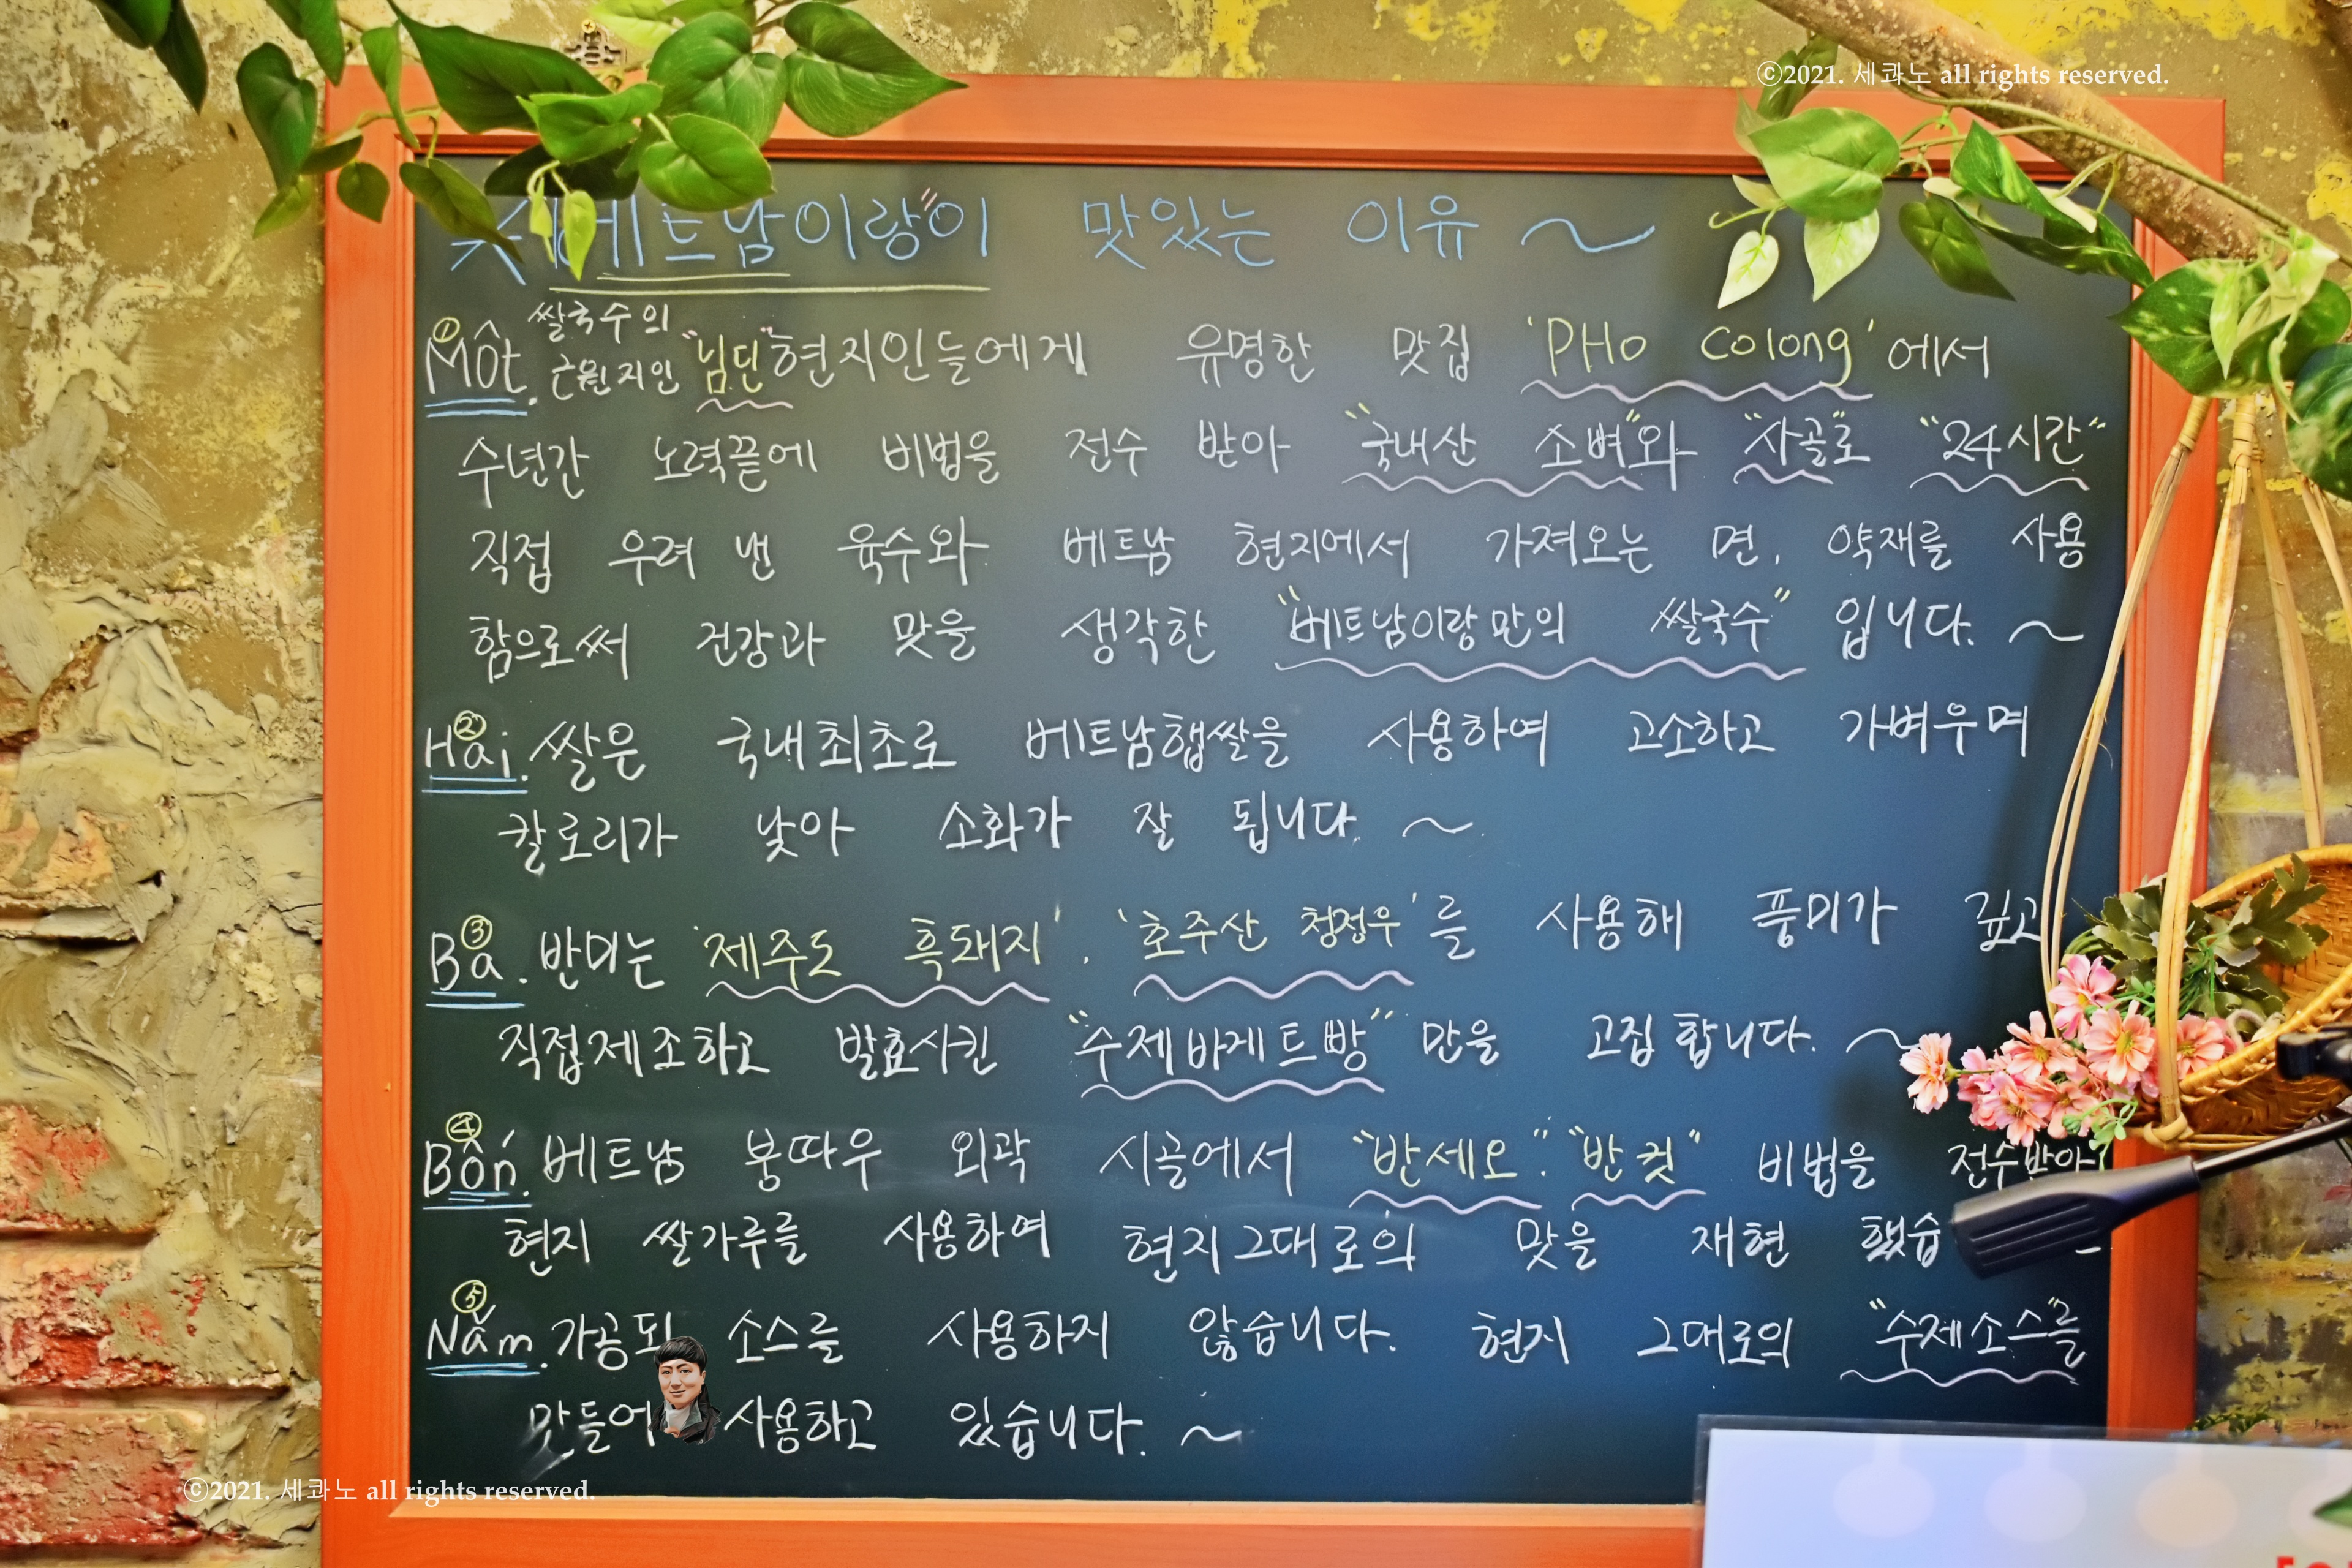 ©2021. 세콰노 all rights reserved.
베트남이랑"이 맛있는 이유 ~
① Một. 쌀국수의 근원지인 "님딘" 현지인들에게 유명한 맛집 'PHo Colong' 에서
수년간 노력끝에 비법을 전수 받아 "국내산 소뼈"와 "사골"로 "24시간"
직접 우려 낸 육수와 베트남 현지에서 가져오는 면, 약재를 사용
함으로써 건강과 맛을 생각한 "베트남이랑만의 쌀국수" 입니다. ~
② Hai. 쌀은 국내최초로 베트남햅쌀을 사용하여 고소하고 가벼우며
칼로리가 낮아 소화가 잘 됩니다. ~
③ Ba. 반미는 '제주도 흑돼지', '호주산 청정우'를 사용해 풍미가 깊고
직접제조하고 발효시킨 "수제바게트빵" 만을 고집합니다. ~
④ Bốn. 베트남 붕따우 외곽 시골에서 "반세오", "반컷" 비법을 전수받아
현지 쌀가루를 사용하여 현지그대로의 맛을 재현 했습
⑤ Năm. 가공된 소스를 사용하지 않습니다. 현지 그대로의 "수제소스"를
만들어 사용하고 있습니다. ~
©2021. 세콰노 all rights reserved.